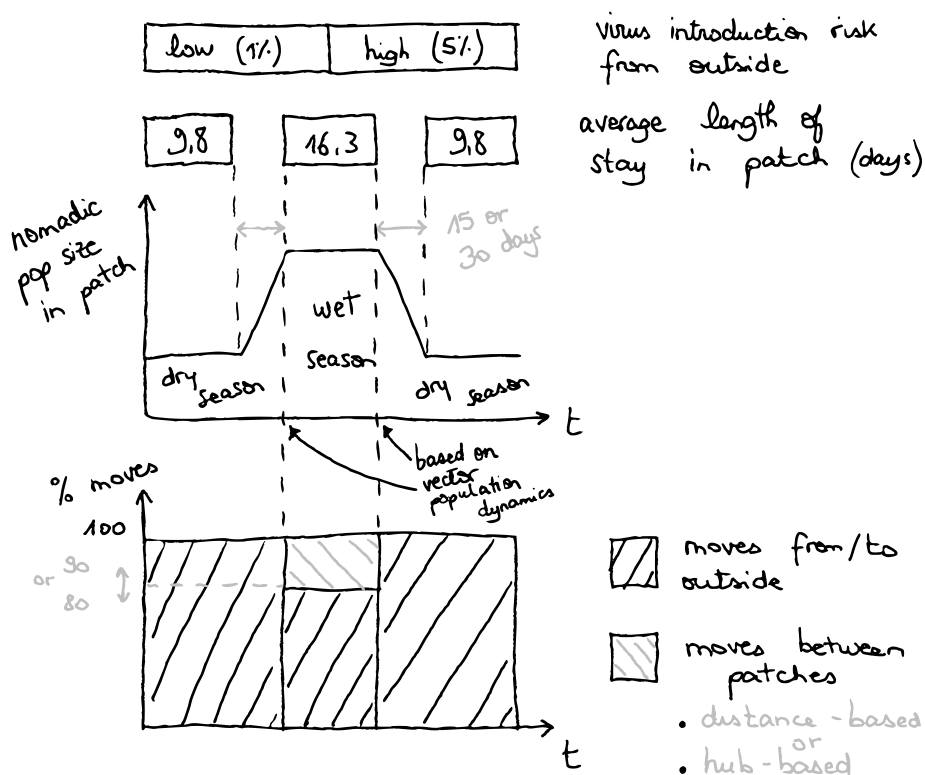 low (1%)
high (5%)
virus introduction risk
from outside
9,8
16,3
9,8
average length of
stay in patch (days)
nomadic
pop size
in patch
15 or
30 days
wet
season
dry
season
dry season
t
based on
vector
population
dynamics
% moves
100
or 90
80
moves from/to
outside
moves between
patches
• distance-based
or
• hub-based
t